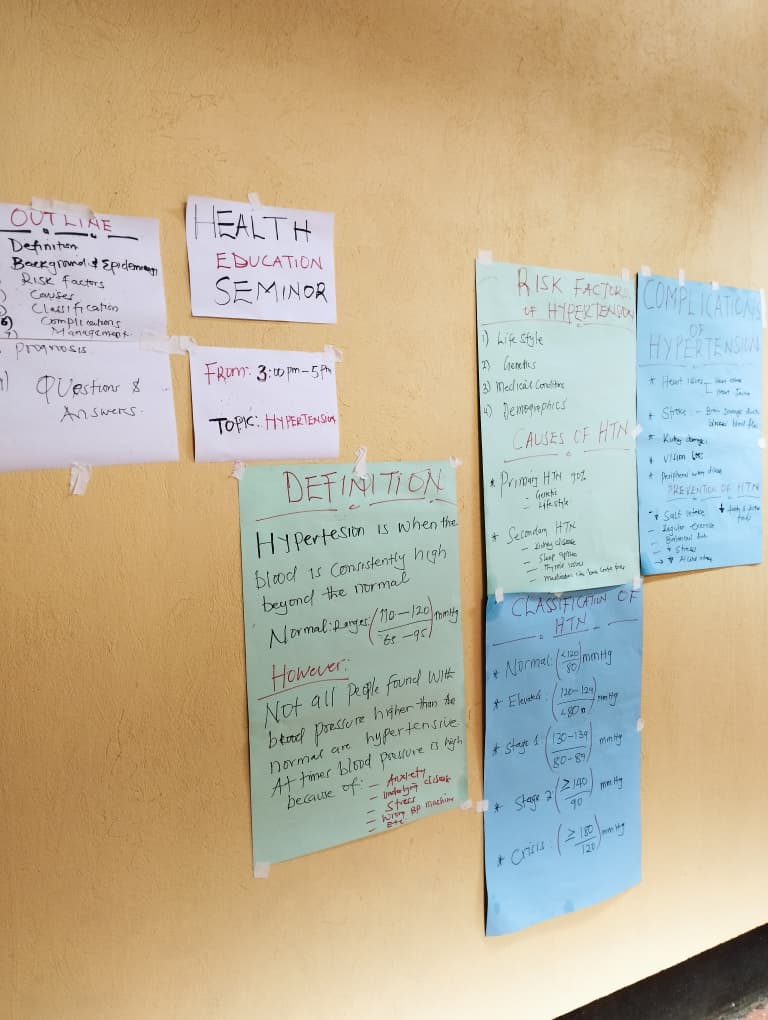 OUTLINE
Definition
Background & Epidemi
Risk factors
Causes
Classification
6) Complications
7) Management
Prognosis
Questions &
Answers.
HEALTH
EDUCATION
SEMINOR
FROM: 3:00pm - 5pm
TOPIC: HYPERTENSION
DEFINITION
Hypertesion is when the
blood is consistently high
beyond the normal
Normal: Ranges (110 - 120 / 65 - 95) mmHg
However:
Not all people found with
blood pressure higher than the
normal are hypertensive
At times blood pressure is high
because of:
- Anxiety
- Underlyin disease
- Stress
- Wrong BP machine
- Etc.
RISK FACTORS
OF HYPERTENSION
1) Life style
2) Genetics
3) Medical Conditions
4) Demographics
CAUSES OF HTN
* Primary HTN 90%
- Genetic
- Life style
* Secondary HTN
- Kidney disease
- Sleep apnea
- Thyroid
COMPLICATIONS
OF
HYPERTENSION
* Heart
* Stroke - Brain damage due to
blood flow
* Kidney damage
* Vision loss
* Peripheral artery disease
PREVENTION OF HTN
- ↓ Salt intake ↓
- Regular exercise
- Balanced
- ↓ Stress
→ ↓ Alcohol
CLASSIFICATION OF
HTN
* Normal: (<120 / 80) mmHg
* Elevated: (120 - 129 / <80) mmHg
* Stage 1: (130 - 139 / 80 - 89) mmHg
* Stage 2 (≥ 140 / 90) mmHg
* Crisis: (≥ 180 / 120) mmHg